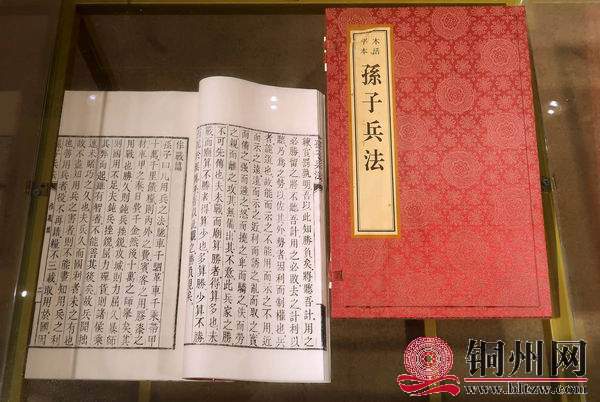 木活
字本
孫子兵法
練賞罰孰明吾以此知勝負矣將聽吾計用之
必勝留之將不聽吾計用之必敗去之計利以
聽乃爲之勢以佐其外勢者因利而制權也兵
者詭道也故能而示之不能用而示之不用近
而示之遠遠而示之近利而誘之亂而取之實
而備之强而避之怒而撓之卑而驕之佚而勞
之親而離之攻其無備出其不意此兵家之勝
不可先傳也夫未戰而廟算勝者得算多也未
戰而廟算不勝者得算少也多算勝少算不勝
之勝負見矣
作戰篇
孫子曰凡用兵之法馳車千駟革車千乘帶甲
十萬千里饋糧則内外之費賓客之用膠漆之
材車甲之奉日費千金然後十萬之師舉矣其
用戰也勝久則鈍兵挫鋭攻城則力屈久暴師
則國用不足夫鈍兵挫鋭屈力殫貨則諸侯乘
其弊而起雖有智者不能善其後矣故兵聞拙
速未睹巧之久也夫兵久而國利者未之有也
故不盡知用兵之害者則不能盡知用兵之利
也善用兵者役不再籍糧不三載取用於國
铜州网
www.hltzw.com